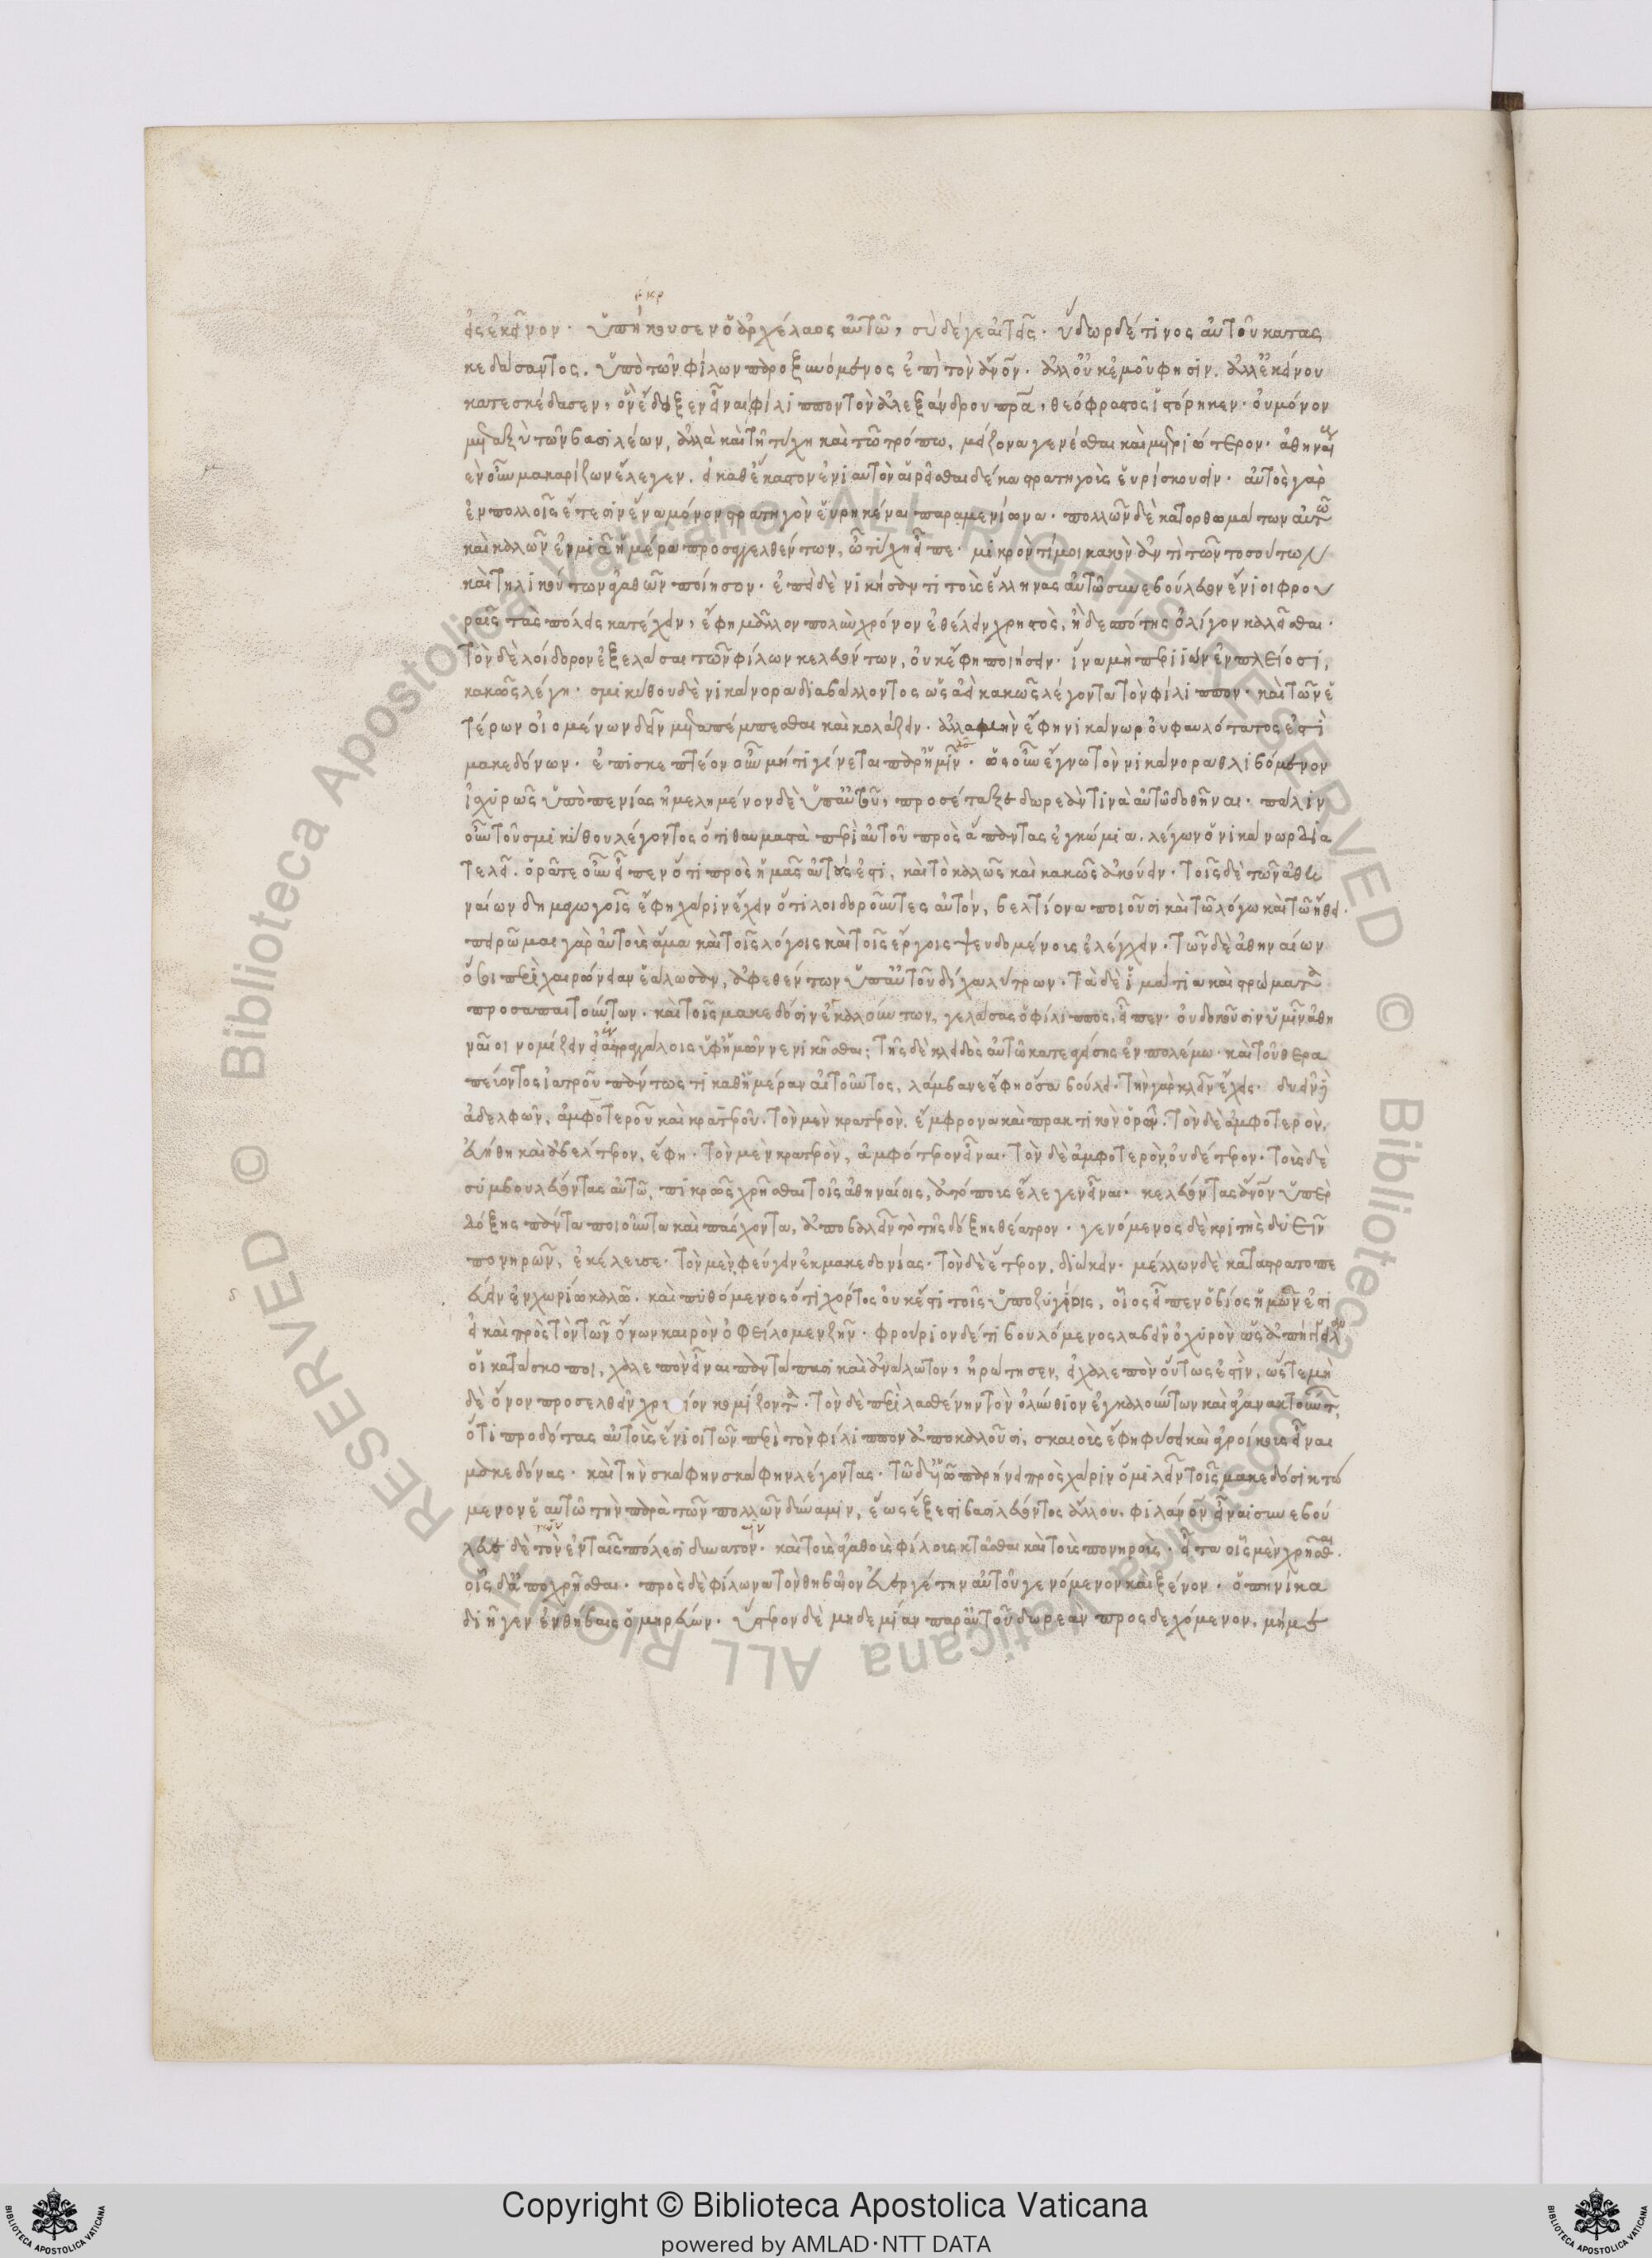 εἰς ἐκεῖνον. ὑπήκουσεν ὁ ἀρχέλαος αὐτῶ, σὺ δέ γε αἰτεῖς. ὕδωρ δέ τινος αὐτοῦ κατας
κεδάσαντος. ὑπὸ τῶν φίλων παροξυνόμενος ἐπὶ τὸν ἄνθρωπον. ἀλλ' οὐκ ἐμοῦ φησίν. ἀλλ' ἐκείνου
κατεσκέδασεν, ὃν ἔδοξεν εἶναι φίλιππον τὸν ἀλεξάνδρου πατέρα, θεόφραστος ἱστόρηκεν. οὐ μόνον
μεταξὺ τῶν βασιλέων, ἀλλὰ καὶ τῆ τύχη καὶ τῶ τρόπω, μείζονα γενέσθαι καὶ μετριώτερον. ἀθηναίους
μακαρίζων ἔλεγεν. εἰ καθ' ἕκαστον ἐνιαυτὸν αἱρεῖσθαι δέκα στρατηγοὺς εὑρίσκουσιν. αὐτὸς γὰρ
ἐν πολλοῖς ἔτεσιν ἕνα μόνον στρατηγὸν εὑρηκέναι παρμενίωνα. πολλῶν δὲ κατορθωμάτων αὐτῶ
καὶ καλῶν ἐν μιᾶ ἡμέρα προσαγγελθέντων, ὦ τύχη εἶπε. μικρόν τί μοι κακὸν ἀντὶ τῶν τοσούτων
καὶ τηλικούτων ἀγαθῶν ποίησον. ἐπεὶ δὲ νικήσαντι τοὺς ἕλληνας αὐτῶ συνεβούλευον ἔνιοι φρου
ραῖς τὰς πόλεις κατέχειν, ἔφη μᾶλλον πολὺν χρόνον ἐθέλειν χρηστὸς, ἢ δεσπότης ὀλίγον καλεῖσθαι.
τὸν δὲ λοίδορον ἐξελάσαι τῶν φίλων κελευόντων, οὐκ ἔφη ποιήσειν. ἵνα μὴ περιιὼν ἐν πλείοσι,
κακῶς λέγη. σμικύθου δὲ νικάνορα διαβάλλοντος ὡς ἀεὶ κακῶς λέγοντα τὸν φίλιππον. καὶ τῶν ἑ
τέρων οἰομένων δεῖν μεταπέμπεσθαι καὶ κολάζειν. ἀλλὰ μὴν ἔφη νικάνωρ οὐ φαυλότατος ἐστὶ
μακεδόνων. ἐπισκεπτέον οὖν μή τι γίνεται παρ' ἡμῖν. ὡς οὖν ἔγνω τὸν νικάνορα θλιβόμενον
ἰσχυρῶς ὑπὸ πενίας ἠμελημένον δὲ ὑπ' αὐτοῦ, προσέταξε δωρεάν τινα αὐτῶ δοθῆναι. πάλιν
οὖν τοῦ σμικύθου λέγοντος ὅτι θαυμαστὰ περὶ αὐτοῦ πρὸς ἅπαντας ἐγκώμια. λέγων ὁ νικάνωρ δια
τελεῖ. ὁρᾶτε οὖν εἶπεν ὅτι πρὸς ἡμᾶς αὐτούς ἐστι, καὶ τὸ καλῶς καὶ κακῶς ἀκούειν. τοῖς δὲ τῶν ἀθη
ναίων δημαγωγοῖς ἔφη χάριν ἔχειν ὅτι λοιδοροῦντες αὐτόν, βελτίονα ποιοῦσι καὶ τῶ λόγω καὶ τῶ ἤθει.
πειρῶμαι γὰρ αὐτοὺς ἅμα καὶ τοῖς λόγοις καὶ τοῖς ἔργοις ψευδομένους ἐλέγχειν. τῶν δὲ ἀθηναίων
ὅσοι περὶ χαιρώνειαν ἑάλωσαν, ἀφεθέντων ὑπ' αὐτοῦ δίχα λύτρων. τὰ δὲ ἱμάτια καὶ στρώματα
προσαπαιτούντων. καὶ τοῖς μακεδόσιν ἐγκαλούντων, γελάσας ὁ φίλιππος, εἶπεν. οὐ δοκοῦσιν ὑμῖν ἀθη
ναῖοι νομίζειν ἐν ἀστραγάλοις ὑφ' ἡμῶν νενικῆσθαι; τῆς δὲ κλειδὸς αὐτῶ κατεαγείσης ἐν πολέμω. καὶ τοῦ θερα
πεύοντος ἰατροῦ πάντως τι καθ' ἡμέραν αἰτοῦντος, λάμβανε ἔφη ὅσα βούλει. τὴν γὰρ κλεῖν ἔχεις. δυεῖν δὲ
ἀδελφῶν, ἀμφοτεροῦ καὶ ἑκατεροῦ. τὸν μὲν ἑκατερὸν, ἔμφρονα καὶ πρακτικὸν ὁρῶν. τὸν δὲ ἀμφοτερόν,
εὐήθη καὶ ἀβέλτερον, ἔφη. τὸν μὲν ἑκατερὸν, ἀμφότερον εἶναι. τὸν δὲ ἀμφοτερὸν, οὐδέτερον. τοὺς δὲ
συμβουλεύοντας αὐτῶ, πικρῶς χρῆσθαι τοῖς ἀθηναίοις, ἀτόπους ἔλεγεν εἶναι. κελεύοντας ἄνθρωπον ὑπὲρ
δόξης πάντα ποιοῦντα καὶ πάσχοντα, ἀποβαλεῖν τὸ τῆς δόξης θέατρον. γενόμενος δὲ κριτὴς δυεῖν
πονηρῶν, ἐκέλευσε. τὸν μὲν, φεύγειν ἐκ μακεδονίας. τὸν δὲ ἕτερον, διώκειν. μέλλων δὲ καταστρατοπε
δεύειν ἐν χωρίω καλῶ. καὶ πυθόμενος ὅτι χόρτος οὐκ ἔστι τοῖς ὑποζυγίοις, οἷος εἶπεν ὁ βίος ἡμῶν ἐστι
εἰ καὶ πρὸς τὸν τῶν ὄνων καιρὸν ὀφείλομεν ζῆν. φρούριον δέ τι βουλόμενος λαβεῖν ὀχυρὸν ὡς ἀπήγγειλαν
οἱ κατάσκοποι, χαλεπὸν εἶναι παντάπασι καὶ ἀνάλωτον, ἠρώτησεν, εἰ χαλεπὸν οὕτως ἐστὶν, ὥστε μη
δὲ ὄνον προσελθεῖν χρυσίον κομίζοντα. τὸν δὲ περὶ λασθένην τὸν ὀλύνθιον ἐγκαλούντων καὶ ἀγανακτούντων,
ὅτι προδότας αὐτοὺς ἔνιοι τῶν περὶ τὸν φίλιππον ἀποκαλοῦσι, σκαιοὺς ἔφη φύσει καὶ ἀγροίκους εἶναι
μακεδόνας. καὶ τὴν σκάφην σκάφην λέγοντας. τῶ δὲ υἱῶ παρήνει πρὸς χάριν ὁμιλεῖν τοῖς μακεδόσι κτώ
μενον ἑαυτῶ τὴν παρὰ τῶν πολλῶν δύναμιν, ἕως ἔξεστι βασιλεύοντος ἄλλου. φιλάνθρωπον εἶναι συνεβού
λευε δὲ τὸν ἐν ταῖς πόλεσι δυνατὸν. καὶ τοὺς ἀγαθοὺς φίλους κτᾶσθαι καὶ τοὺς πονηροὺς. εἶτα οἷς μὲν χρῆσθαι.
οἷς δ' ἀποχρῆσθαι. πρὸς δὲ φίλωνα τὸν θηβαῖον εὐεργέτην αὐτοῦ γενόμενον καὶ ξένον. ὁπηνίκα
διῆγεν ἐν θήβαις ὁμηρεύων. ὕστερον δὲ μηδεμίαν παρ' αὐτοῦ δωρεὰν προσδεχόμενον, μή με